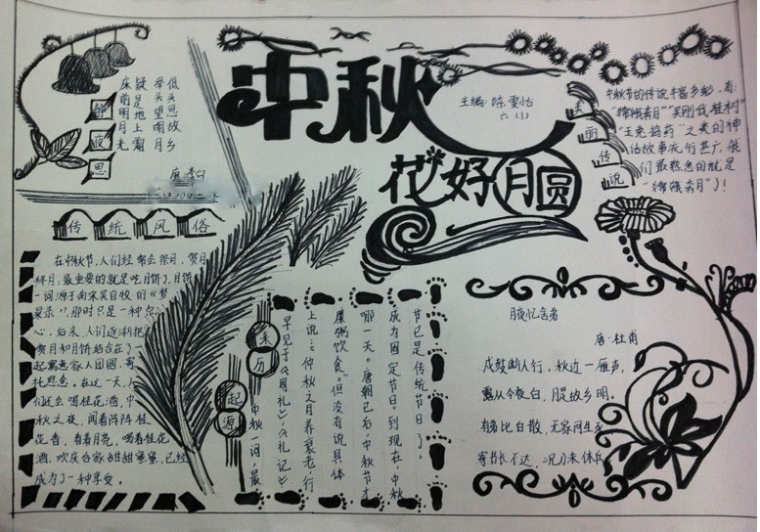 中秋
主编:陈雪怡
花好月圆
静夜思
床前明月光
疑是地上霜
举头望明月
低头思故乡
唐 李白
来历传说
中秋节的传说丰富多彩,有:
"嫦娥奔月""吴刚伐桂树"
"玉兔捣药"之类的神
话故事流行甚广,我
们最熟悉的就是
"嫦娥奔月")!
传统风俗
在中秋节,人们经常去祭月,赏月
拜月,最重要的就是吃月饼了,月饼
一词源于南宋吴自牧的《梦
粱录》,那时只是一种点
心,后来,人们逐渐把
赏月和月饼结合在了一
起寓意家人团圆,寄
托思念,在这一天,人
们还会喝桂花酒,中
秋之夜,闻着阵阵桂
花香,看着月亮,喝着桂花
酒,欢庆合家甜甜蜜蜜,已经
成为了一种享受。
来历
起源
中秋一词,最
早见于《周礼》,《礼记》
上说:仲秋之月养衰老,行
糜粥饮食。但没有说具体
哪一天。唐朝已有中秋节才
成为固定节日。到现在,中秋
节已是传统节日了。
月夜忆舍弟
唐·杜甫
戍鼓断人行,秋边一雁声,
露从今夜白,月是故乡明。